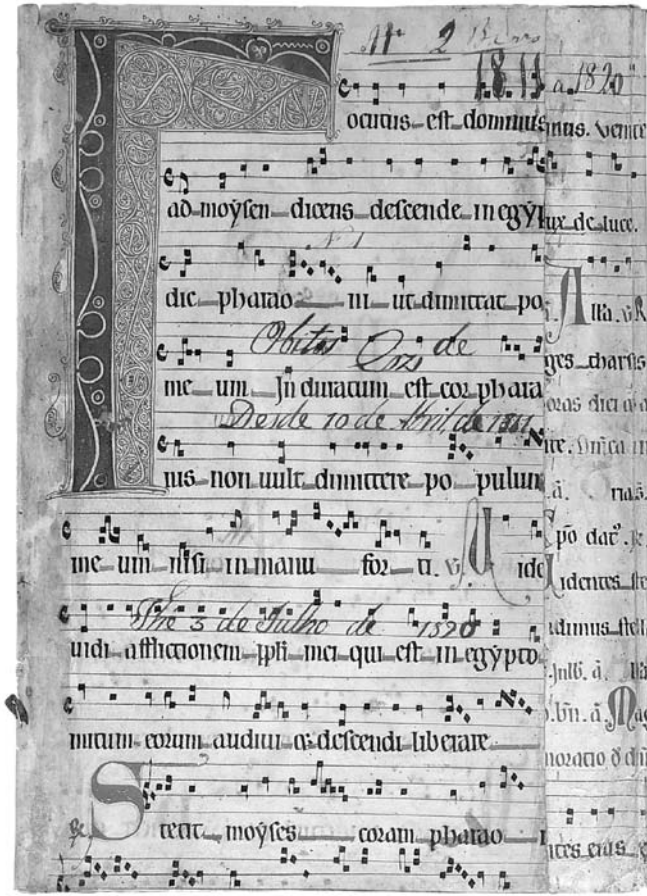 Nº 2
1811 a 1820
Locutus est dominus
ad moysen dicens descende in egyp
Nº 1
dic pharao ni ut dimittat po
Obitos de
me um In duratum est cor phara
Desde 10 de Abril de 1811
nis non uult dimittere po pulum
me um nisi in manu for ti. V Uide
Athé 3 de Julho de 1820
uidi afflictionem ppli mei qui est in egypto
mitum eorum audiui et descendi liberare
Stetit moyses coram pharao
nus. venite
ux de luce.
Alla.
ges tharsis
oras dici
ite.
a. nas.
po dat.
identes ste
uidimus stell
noratio
ites eius